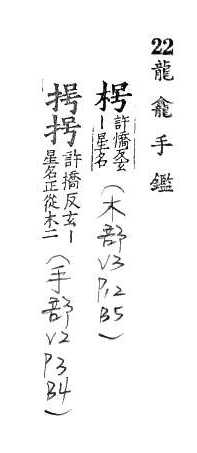 22龍龕手鑑
枵許憍反玄
ー星名
(木部V3P12B5)
𢭔拐許橋反玄ー
星名正從木二
(手部V2P3B4)